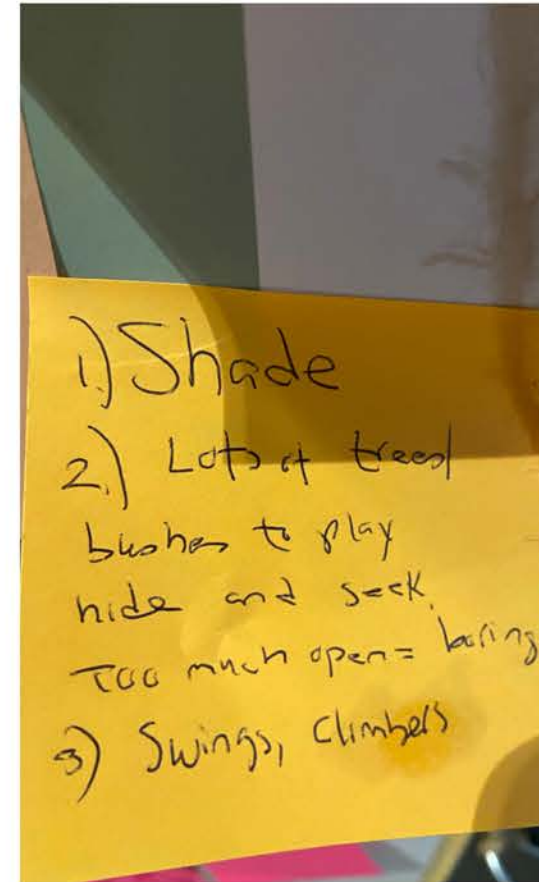 1.) Shade
2.) Lots of trees/
bushes to play
hide and seek.
Too much open = boring
3) Swings, climbers